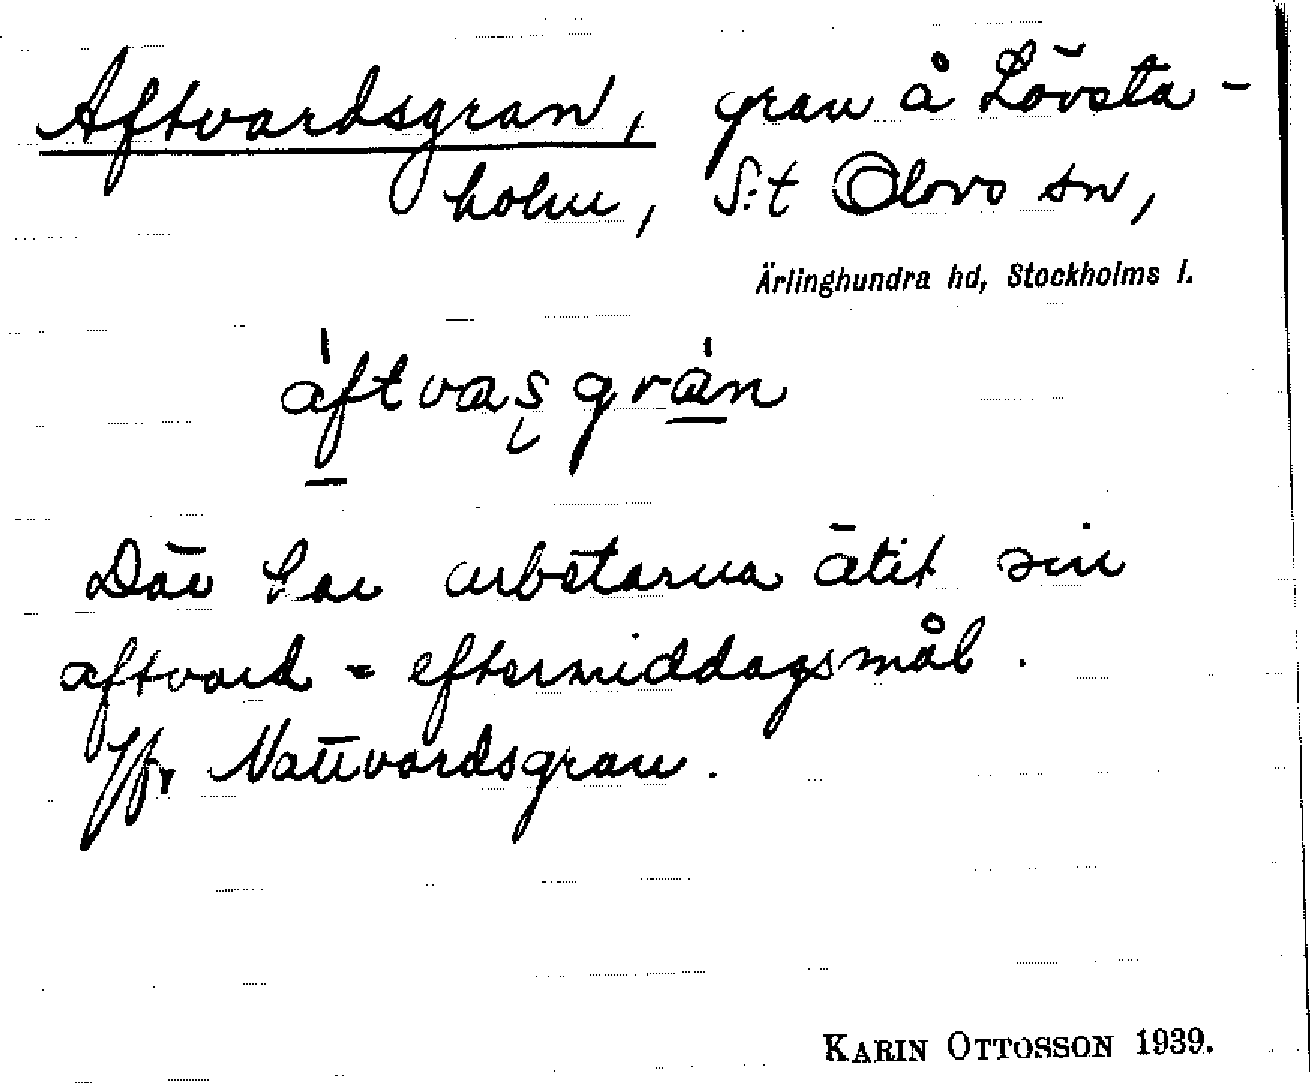 Aftvardsgran, gran å Lövsta-
holm, S:t Olovs sn,
Ärlinghundra hd, Stockholms l.
áftvasgrán
Där har arbetarna ätit sin
aftvard = eftermiddagsmål.
Jfr Nattvardsgran.
KARIN OTTOSSON 1939.